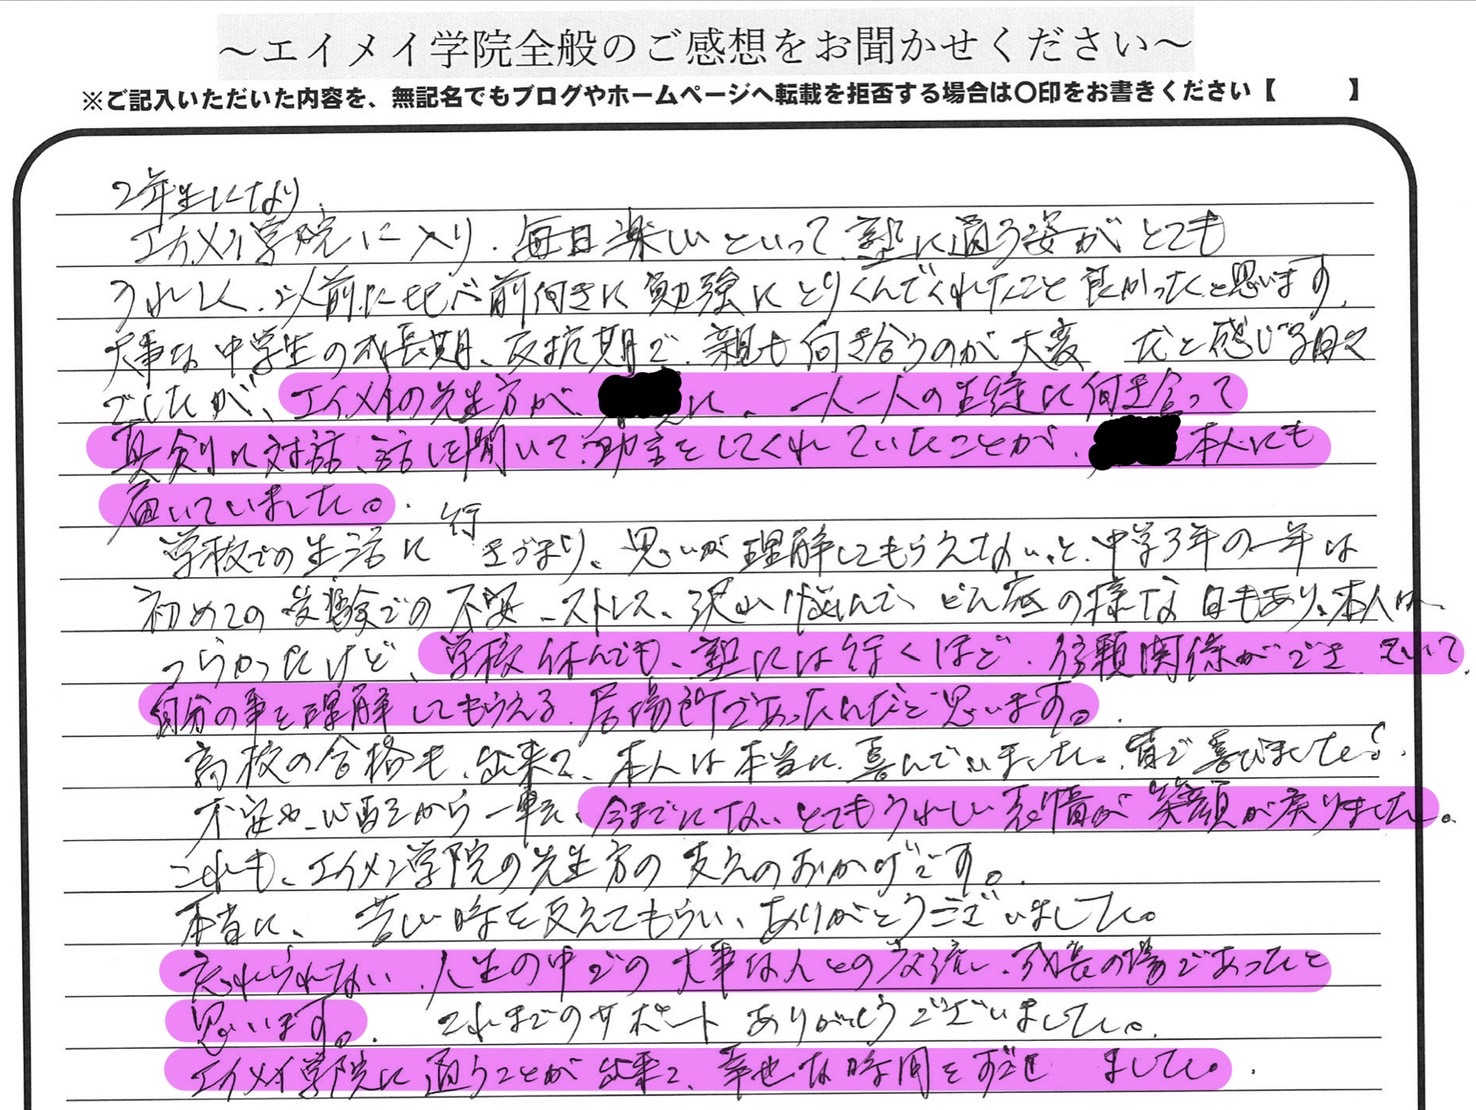 ～エイメイ学院全般のご感想をお聞かせください～
※ご記入いただいた内容を、無記名でもブログやホームページへ転載を拒否する場合は〇印をお書きください【　　】
2年生になり、
エイメイ学院に入り、毎日楽しいといって塾に通う姿がとても
うれしく、以前に比べ前向きに勉強にとりくんでくれたこと良かったと思います。
大事な中学生の成長期、反抗期で、親も向き合うのが大変だと感じる日々
でしたが、エイメイの先生方が、に、一人一人の生徒に向き合って
真剣に対話、話しを聞いて、助言をしてくれていたことが、本人にも
届いていました。
学校での生活に行きづまり、思いが理解してもらえないと、中学3年の一年は
初めての受験での不安、ストレス、沢山悩んで、どん底の様な日もあり、本人は、
つらかったけど、学校休んでも、塾には行くほど、信頼関係ができていて、
自分の事を理解してもらえる居場所であったんだと思います。
高校の合格も、出来て、本人は本当に喜んでいました。皆で喜びました。
不安や、心配から一転、今までにないとてもうれしい表情が笑顔が戻りました。
これも、エイメイ学院の先生方の支えのおかげです。
本当に、苦しい時を支えてもらい、ありがとうございました。
忘れられない、人生の中での大事な人との交流、成長の場であったと
思います。これまでのサポートありがとうございました。
エイメイ学院に通うことが出来て、幸せな時間をすごしました。